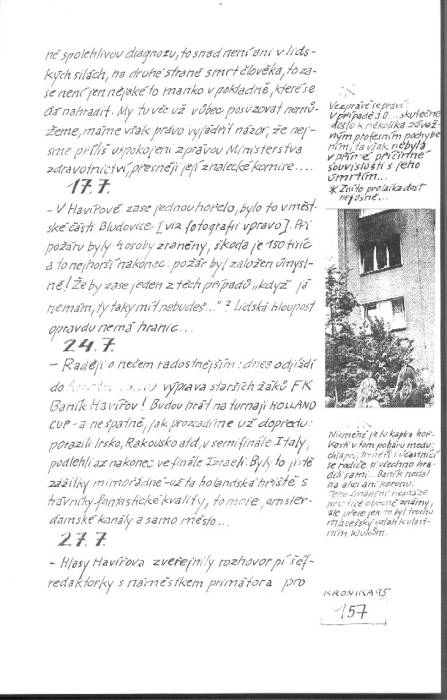 ně spolehlivou diagnozu, to snad není ani v lids-
kých silách, na druhé straně smrt člověka, to za-
se není jen nějaké to manko v pokladně, které se
dá nahradit. My tu věc už vůbec posuzovat nemů-
žeme, máme však právo vyjádřit názor, že nej-
sme příliš uspokojeni zprávou Ministerstva
zdravotnictví, přesněji její znalecké komise....
17.7.
- V Havířově zase jednou hořelo, bylo to v měst-
ské části Bludovice [viz fotografii vpravo]. Při
požáru byly 4 osoby zraněny, škoda je 150 tisíc
a to nejhorší nakonec: požár byl založen úmysl-
ně! Že by zase jeden z těch případů „když já
nemám, ty taky mít nebudeš..." ? Lidská hloupost
opravdu nemá hranic...
24.7.
- Raději o něčem radostnějším: dnes odjíždí
do výprava starších žáků FK
Baník Havířov! Budou hrát na turnaji HOLLAND
CUP - a nešpatně, jak prozradíme už dopředu:
porazili Irsko, Rakousko atd, v semifinále Italy,
podlehli až nakonec ve finále Izraeli. Byly to jistě
zážitky mimořádné - už ta holandská hřiště s
trávníky fantastické kvality, to moře, amster-
damské kanály a samo město...
27.7.
- Hlasy Havířova zveřejnily rozhovor při šéf-
redaktorky s náměstkem primátora pro
Ve zprávě se praví:
V případě J.O... skutečně
došlo k několika závaž-
ným profesním pochybe-
ním, ta však nebyla
v přímé příčinné
souvislosti s jeho
úmrtím...
* Zní to pro laika dost
nejasně...
Nicméně je tu kapka hoř-
kosti v tom poháru medu:
chlapci, trenéři i účastnící
se rodiče si všechno hra-
dili sami... Baník nedal
na akci ani korunu.
Jeho finanční
jsou obecně známy,
ale přece jen to byl trochu
macešský vztah k vlast-
ním klukům.
KRONIKA 95
157